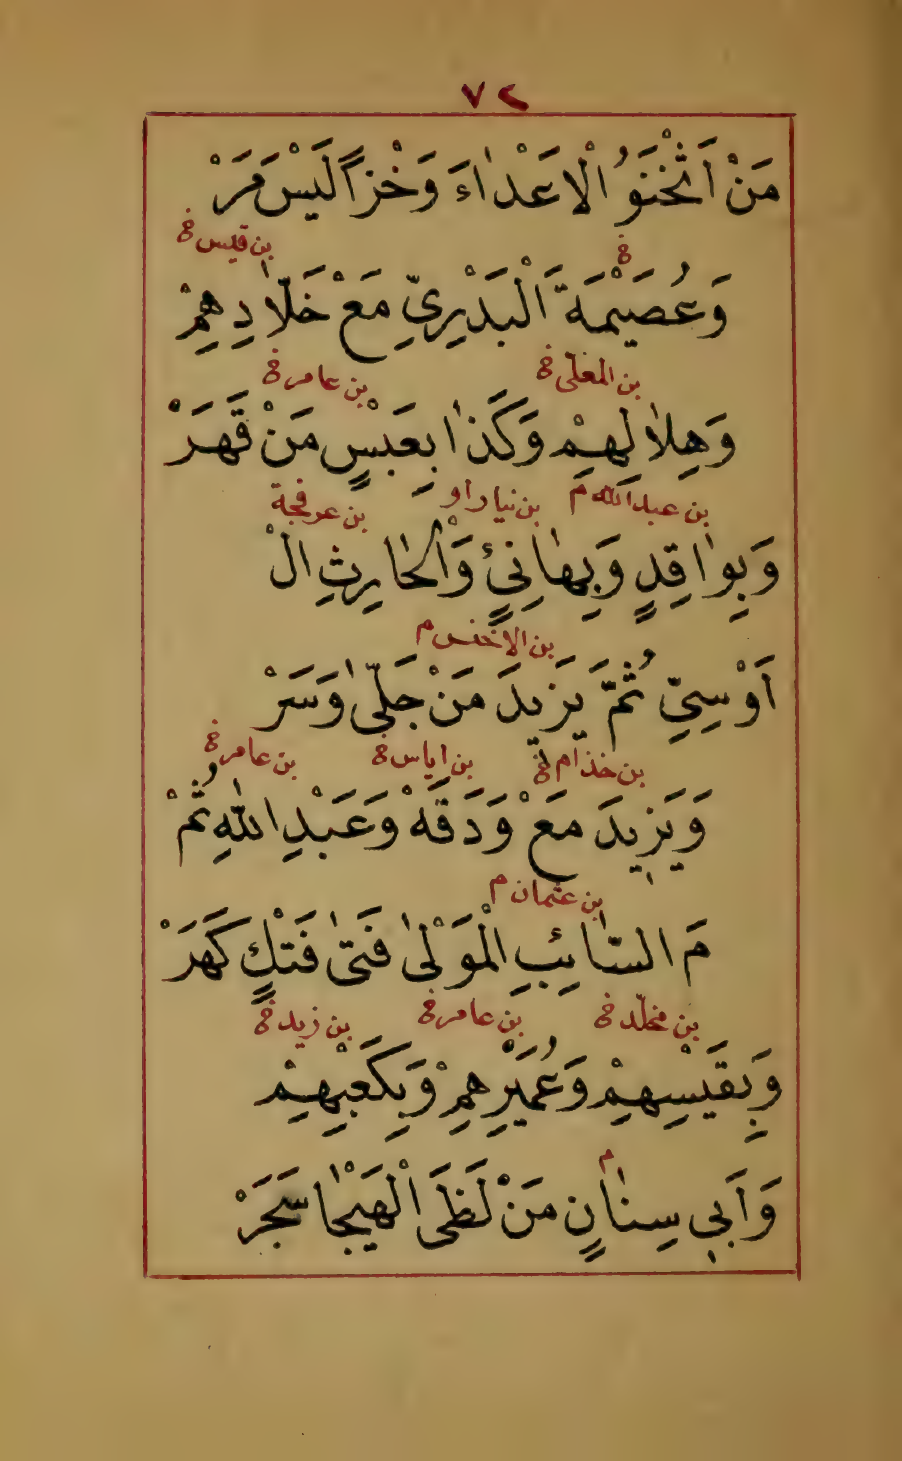 ٧٢
مَنْ اَثْخَنَوُ الْاَعْدٰاءَ وَخْزاً لَيْسَ مَرْ
خ
بن قيس خ
وَعُصَيْمَةَ الْبَدْرِيِّ مَعْ خَلّٰادِهِمْ
بن المعلّى خ بن عامر خ
وَهِلٰالِهِمْ وَكَذٰا بِعَبْسٍ مَنْ قَهَرْ
بن عبدالله م بن نيار او بن عرفجة
وَبِوٰاقِدٍ وَبِهٰانِئٍ وَالْحٰارِثِ الْ
بن الاخنس م
اَوْسِيِّ ثُمَّ يَزِيدَ مَنْ جَلّٰى وَسَرْ
بن خذام خ بن اياس خ بن عامر خ
وَيَزِيدَ مَعْ وَدَقَهْ وَعَبْدِ اللهِ ثُمْ
بن عثمان م
مَ السّٰائِبِ الْمَوْلٰى فَتىٰ فَتْكٍ كَهَرْ
بن مخلّد خ بن عامر خ بن زيد خ
وَبِقَيْسِهِمْ وَعُمَيْرِهِمْ وَبِكَعْبِهِمْ
م
وَاَبِي سِنٰانٍ مَنْ لَظَى الْهَيْجٰا سَجَرْ